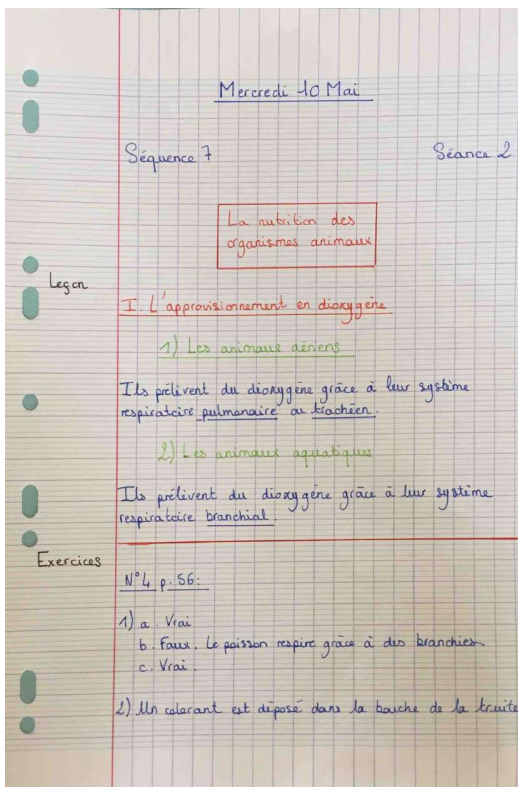 Mercredi 10 Mai
Séquence 7 Séance 2
La nutrition des
organismes animaux
Leçon
I. L'approvisionnement en dioxygène
1) Les animaux aériens
Ils prélèvent du dioxygène grâce à leur système
respiratoire pulmonaire ou trachéen.
2) Les animaux aquatiques
Ils prélèvent du dioxygène grâce à leur système
respiratoire branchial.
Exercices
N°4 p.56:
1) a. Vrai
b. Faux. Le poisson respire grâce à des branchies
c. Vrai.
2) Un colorant est déposé dans la bouche de la truite